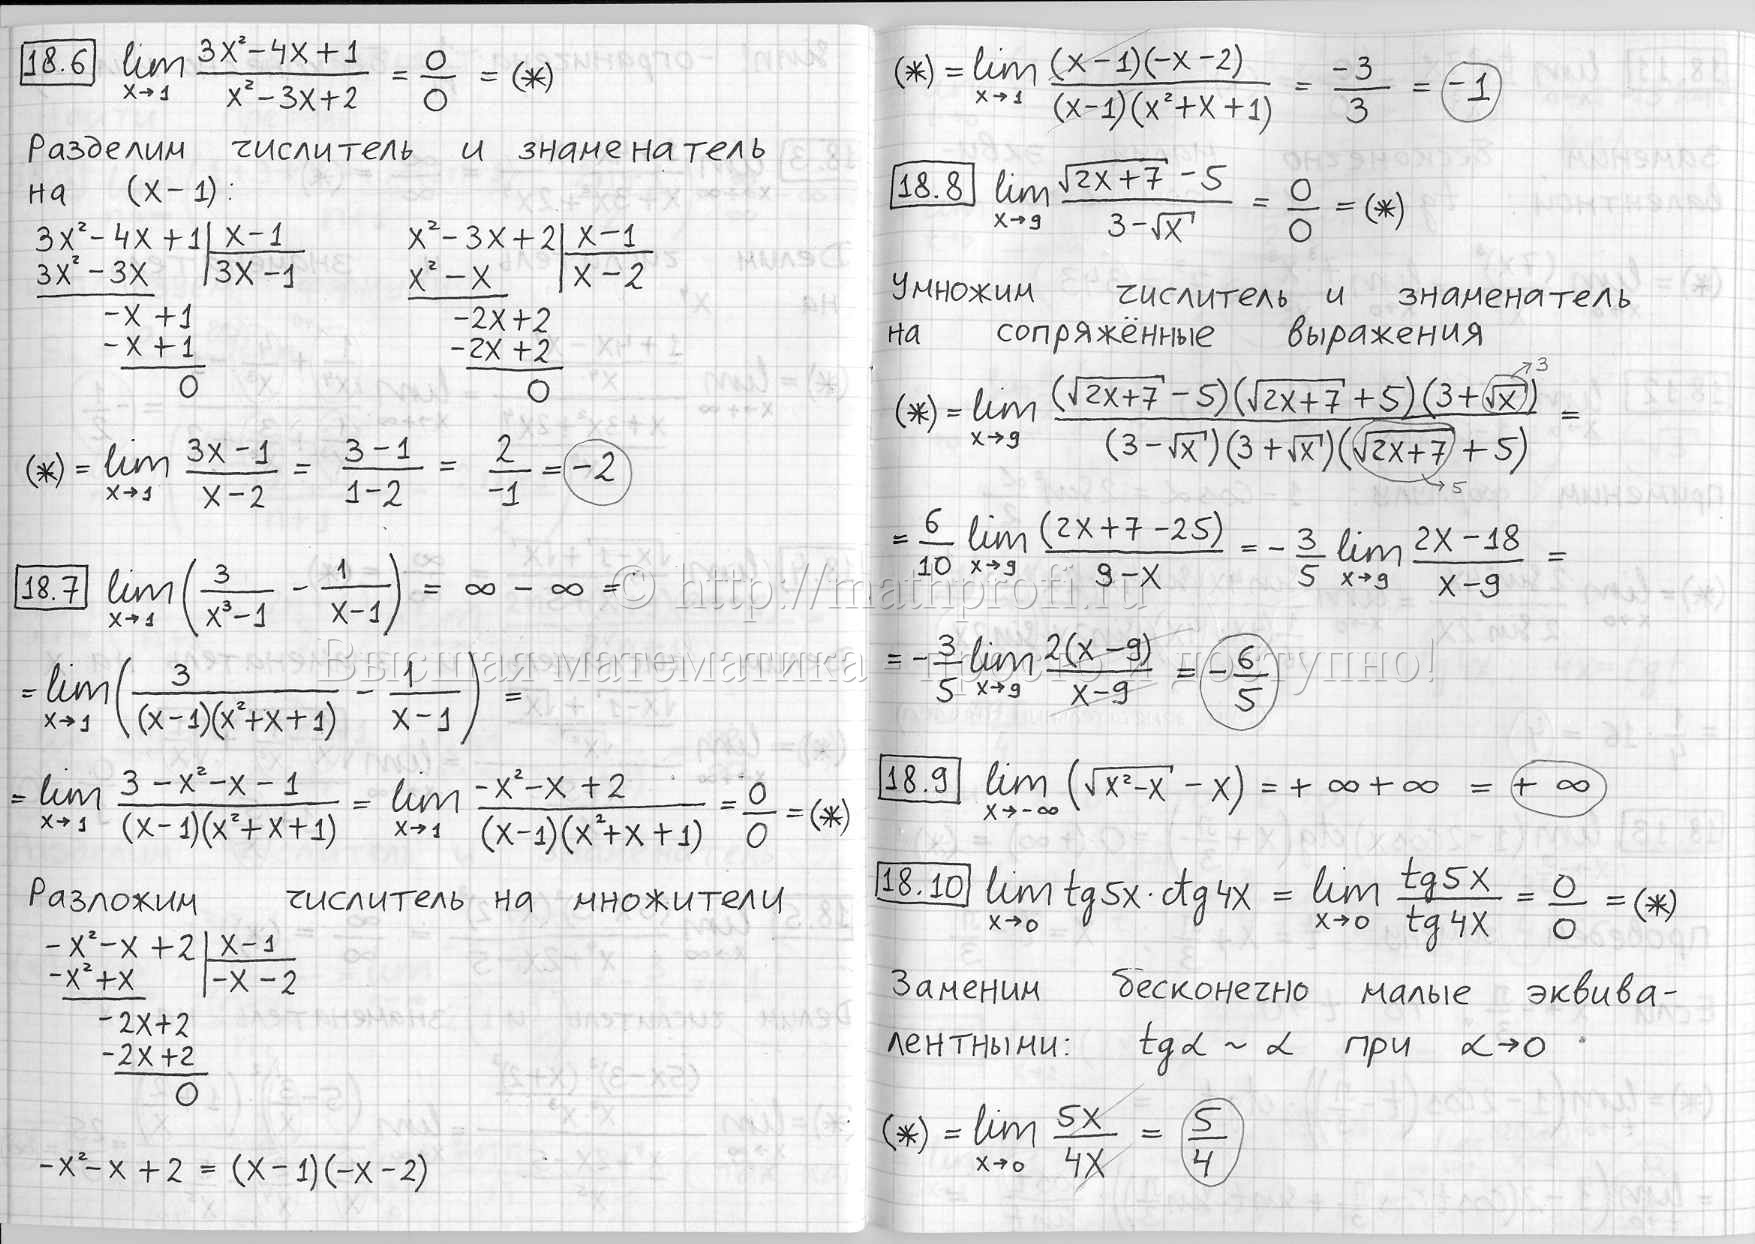 18.6 lim x→1 (3x²-4x+1)/(x²-3x+2) = 0/0 = (*)
Разделим числитель и знаменатель
на (x-1):
3x²-4x+1 | x-1
3x²-3x | 3x-1
-x+1
-x+1
0
x²-3x+2 | x-1
x²-x | x-2
-2x+2
-2x+2
0
(*) = lim x→1 (3x-1)/(x-2) = (3-1)/(1-2) = 2/-1 = -2
18.7 lim x→1 (3/(x³-1) - 1/(x-1)) = ∞ - ∞ =
= lim x→1 (3/((x-1)(x²+x+1)) - 1/(x-1)) =
= lim x→1 (3-x²-x-1)/((x-1)(x²+x+1)) = lim x→1 (-x²-x+2)/((x-1)(x²+x+1)) = 0/0 = (*)
Разложим числитель на множители
-x²-x+2 | x-1
-x²+x | -x-2
-2x+2
-2x+2
0
-x²-x+2 = (x-1)(-x-2)
(*) = lim x→1 ((x-1)(-x-2))/((x-1)(x²+x+1)) = -3/3 = -1
18.8 lim x→9 (√(2x+7) - 5)/(3-√x) = 0/0 = (*)
Умножим числитель и знаменатель
на сопряжённые выражения
(*) = lim x→9 ((√(2x+7) - 5)(√(2x+7) + 5)(3+√x))/((3-√x)(3+√x)(√(2x+7) + 5)) =
→3
→5
= 6/10 lim x→9 (2x+7-25)/(9-x) = -3/5 lim x→9 (2x-18)/(x-9) =
= -3/5 lim x→9 2(x-9)/(x-9) = -6/5
18.9 lim x→-∞ (√(x²-x) - x) = +∞+∞ = +∞
18.10 lim x→0 tg5x·ctg4x = lim x→0 tg5x/tg4x = 0/0 = (*)
Заменим бесконечно малые эквива-
лентными: tgα ~ α при α→0
(*) = lim x→0 5x/4x = 5/4
© http://mathprofi.ru
Высшая математика – просто и доступно!